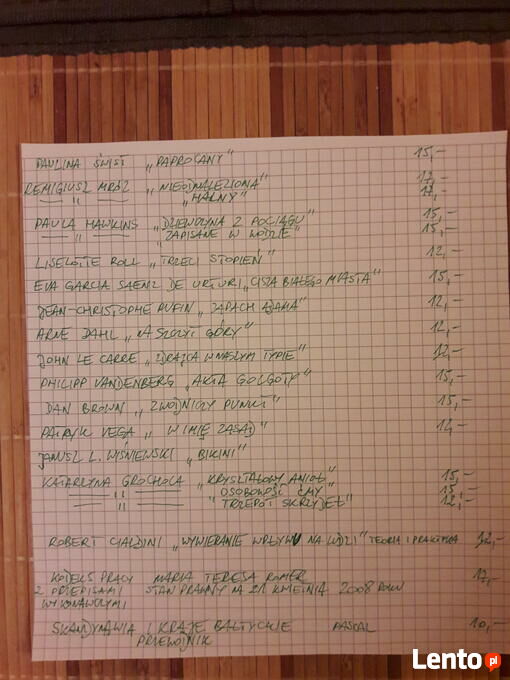 PAULINA ŚWIST „PAPROCANY" 15,-
REMIGIUSZ MRÓZ „NIEODNALEZIONA" 17,-
— " — „HALNY" 17,-
PAULA HAWKINS „DZIEWCZYNA Z POCIĄGU" 15,-
— " — „ZAPISANE W WODZIE" 15,-
LISELOTTE ROLL „TRZECI STOPIEŃ" 12,-
EVA GARCIA SAENZ DE URTURI „CISZA BIAŁEGO MIASTA" 15,-
JEAN-CHRISTOPHE RUFIN „ZAPACH ADAMA" 12,-
ARNE DAHL „NA SZCZYT GÓRY" 12,-
JOHN LE CARRE „ZDRAJCA W NASZYM TYPIE" 12,-
PHILIPP VANDENBERG „AKTA GOLGOTY" 15,-
DAN BROWN „ZWODNICZY PUNKT" 15,-
PATRYK VEGA „W IMIĘ ZASAD" 12,-
JANUSZ L. WIŚNIEWSKI „BIKINI"
KATARZYNA GROCHOLA „KRYSZTAŁOWY ANIOŁ" 15,-
— " — „OSOBOWOŚĆ ĆMY 15,-
— " — TRZEPOT SKRZYDEŁ" 12,-
ROBERT CIALDINI „WYWIERANIE WPŁYWU NA LUDZI" TEORIA I PRAKTYKA 12,-
KODEKS PRACY MARIA TERESA ROMER 17,-
Z PRZEPISAMI STAN PRAWNY NA 21 KWIETNIA 2008 ROKU
WYKONAWCZYMI
SKANDYNAWIA I KRAJE BAŁTYCKIE PASCAL 10,-
PRZEWODNIK
Lento.pl